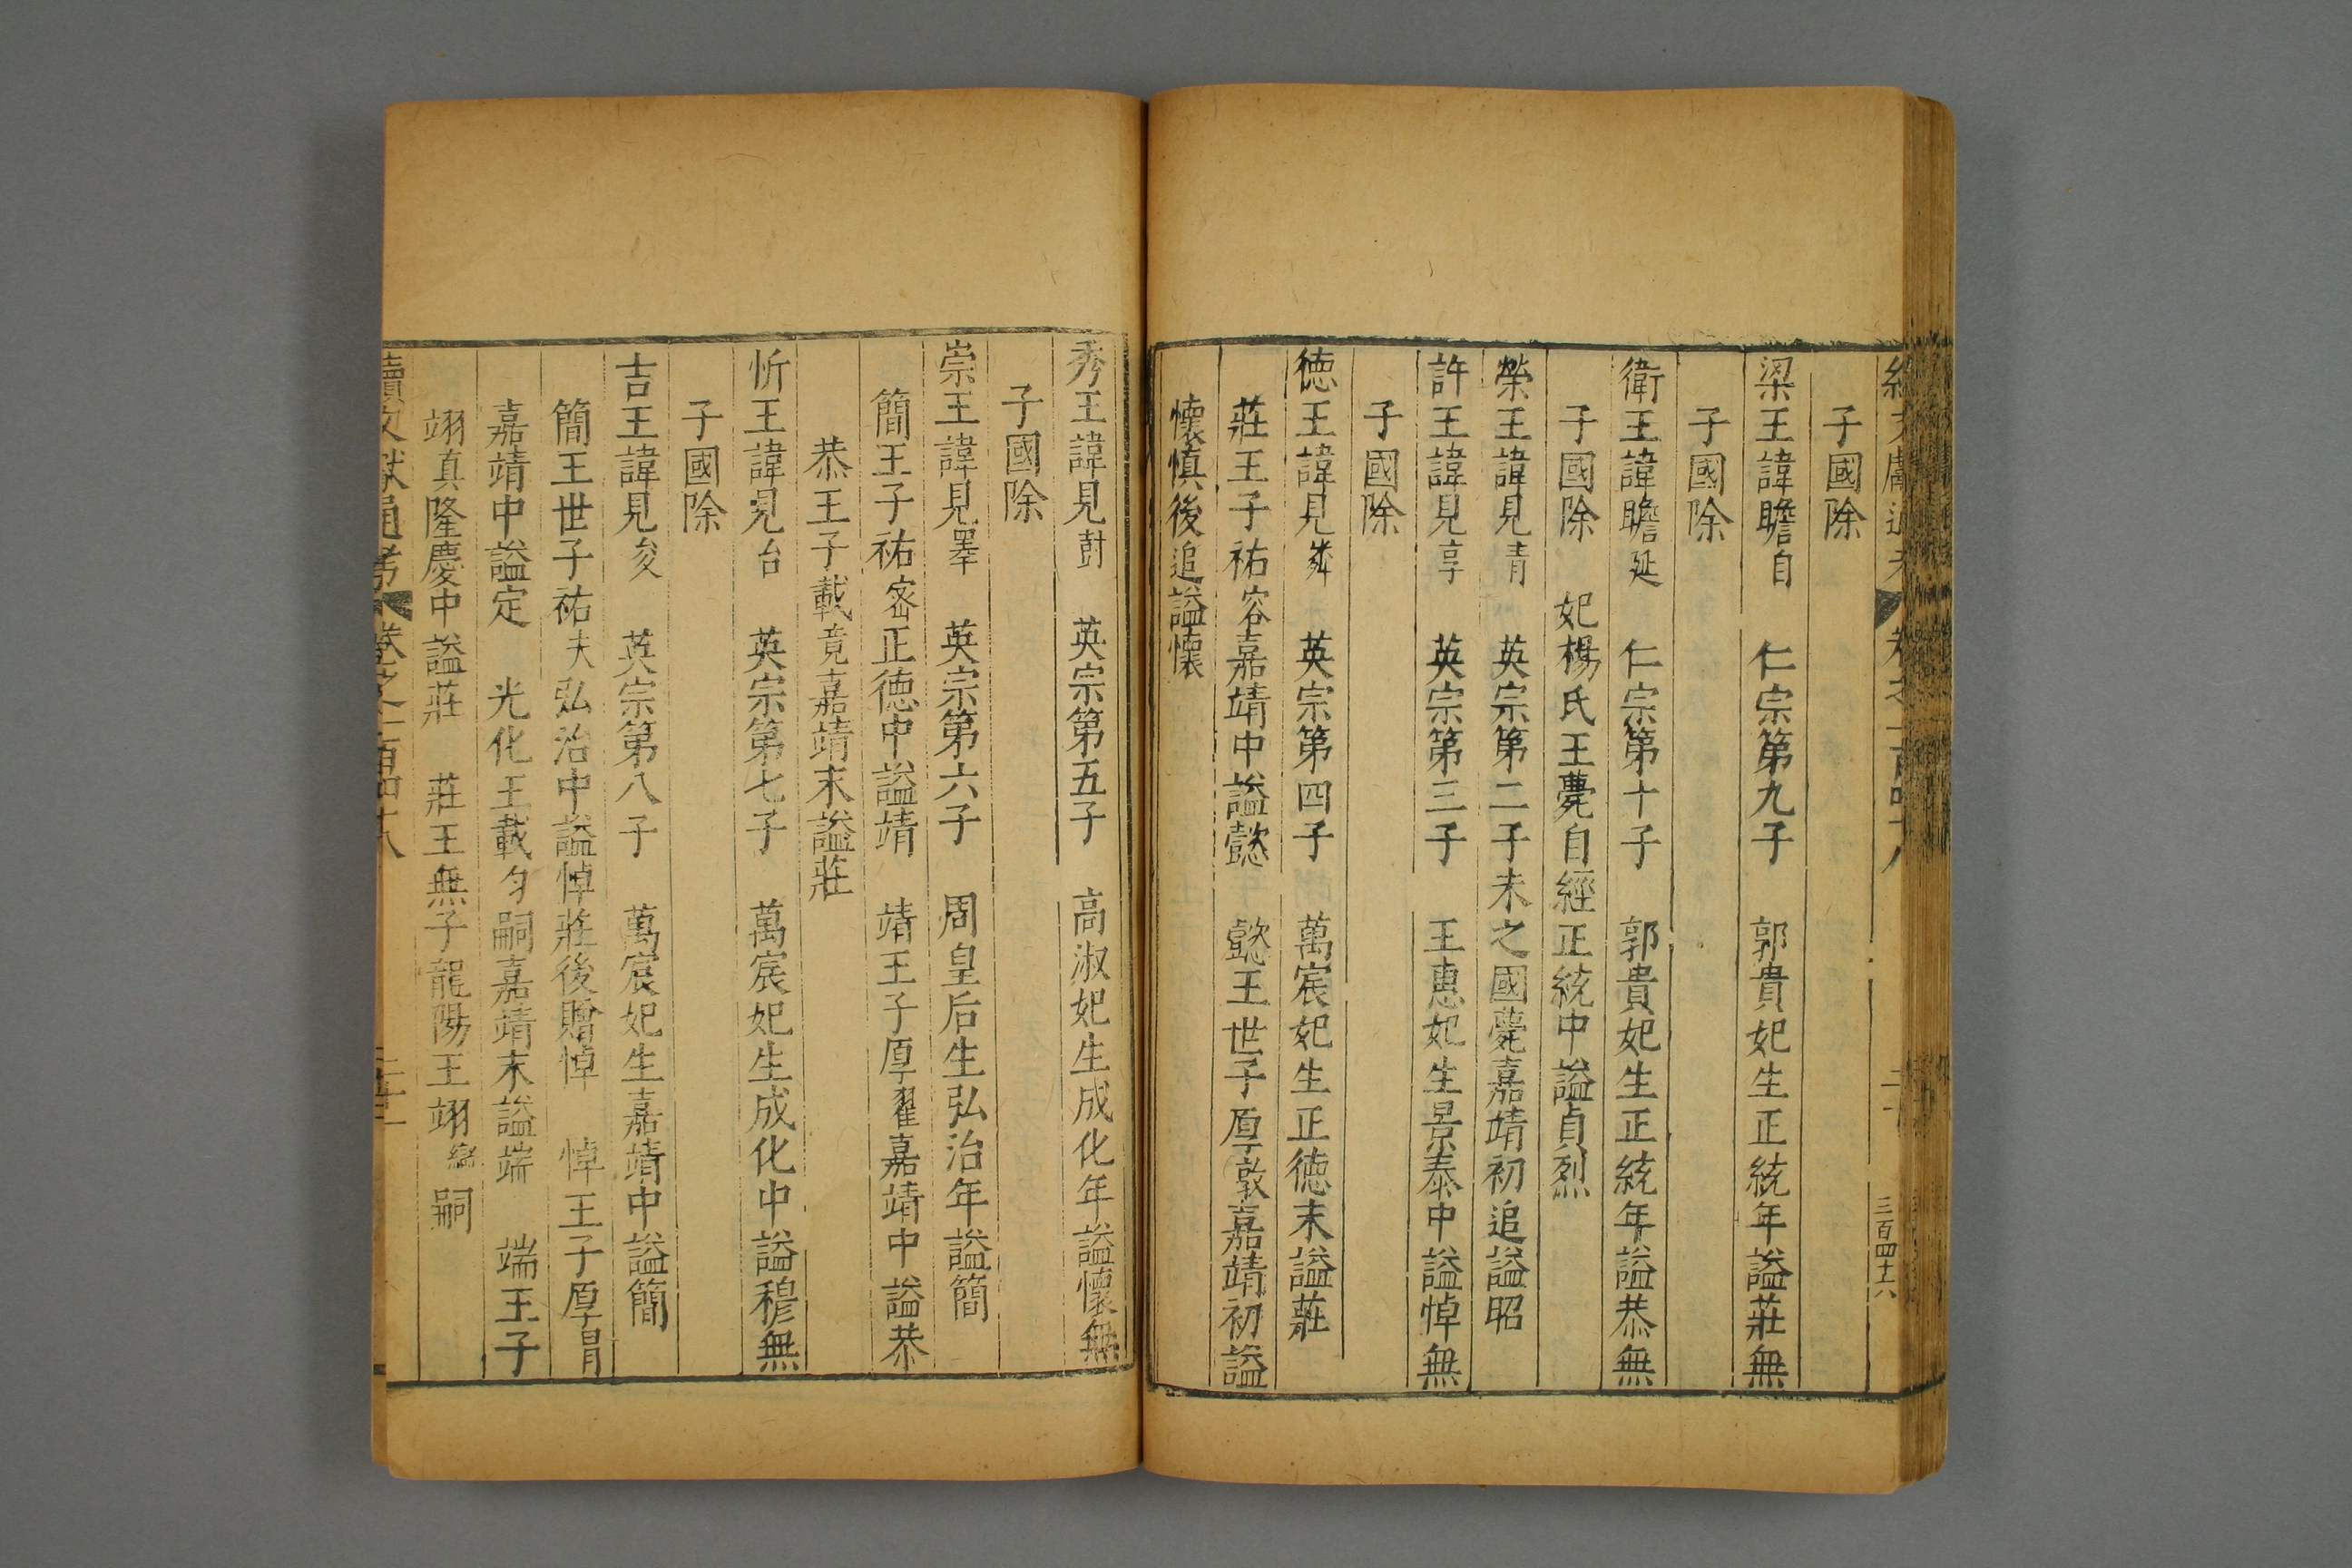 子國除
梁王諱瞻自 仁宗第九子 郭貴妃生正統年謚莊無
子國除
衛王諱瞻延 仁宗第十子 郭貴妃生正統年謚恭無
子國除 妃楊氏王薨自經正統中謚貞烈
榮王諱見清 英宗第二子未之國薨嘉靖初追謚昭
許王諱見享 英宗第三子 王惠妃生景泰中謚悼無
子國除
德王諱見 英宗第四子 萬宸妃生正德末謚莊
莊王子祐容嘉靖中謚懿 懿王世子厚敦嘉靖初謚
懷慎後追謚懷
三百四十六
秀王諱見 英宗第五子 高淑妃生成化年謚懷無
子國除
崇王諱見澤 英宗第六子 周皇后生弘治年謚簡
簡王子祐密正德中謚靖 靖王子厚耀嘉靖中謚恭
恭王子載竟嘉靖末謚莊
忻王諱見台 英宗第七子 萬宸妃生成化中謚穆無
子國除
吉王諱見夋 英宗第八子 萬宸妃生嘉靖中謚簡
簡王世子祐夫弘治中謚悼莊後贈悼 悼王子厚冐
嘉靖中謚定 光化王載勻嗣嘉靖末謚端 端王子
翊真隆慶中謚莊 莊王無子龍陽王翊 嗣
續文獻通考 卷之二百四十八